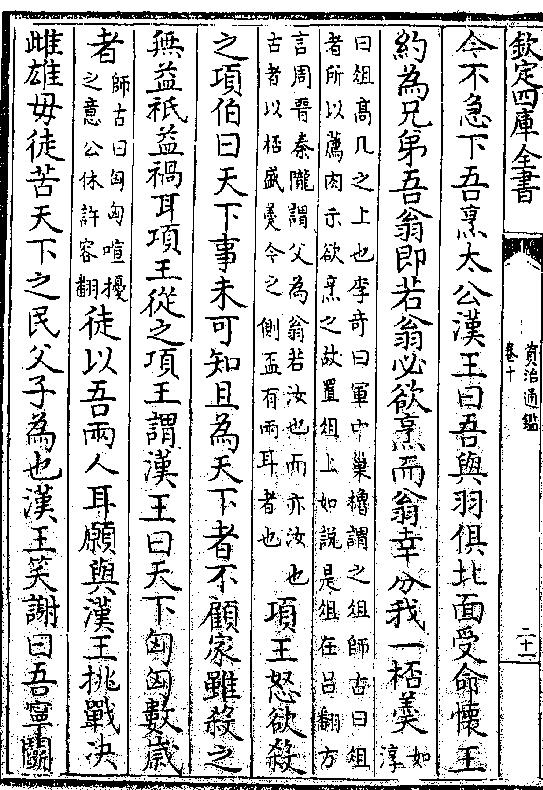 欽定四庫全書
資治通鑑
卷十
二十一
今不急下吾烹太公漢王曰吾與羽俱北面受命懷王
約為兄弟吾翁即若翁必欲烹而翁幸分我一桮羹
如
淳
曰俎髙几之上也李奇曰軍中巢櫓謂之俎師古曰俎
者所以薦肉示欲烹之故置俎上如說是俎在吕翻方
言周晉秦隴謂父為翁若汝也而亦汝也
古者以桮盛羹今之側盃有兩耳者也
項王怒欲殺
之項伯曰天下事未可知且為天下者不顧家雖殺之
無益祗益禍耳項王從之項王謂漢王曰天下匈匈數歲
者
師古曰匈匈喧擾
之意公休許容翻
徒以吾兩人耳願與漢王挑戰决
雌雄毋徒苦天下之民父子為也漢王笑謝曰吾寧鬭